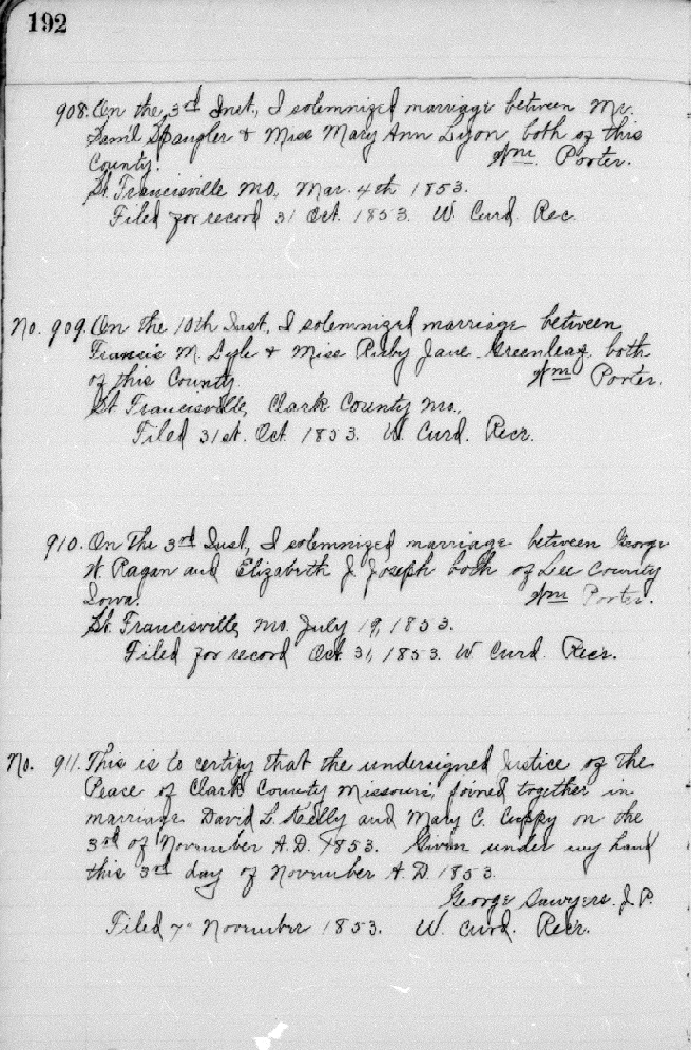 192
908. On the 3rd Inst., I solemnized marriage between Mr.
Saml Spangler & Miss Mary Ann Lyon both of this
County. Wm Porter.
St. Francisville Mo., Mar. 4th 1853.
Filed for record 31 Oct. 1853. W. Curd. Rec
No. 909. On the 10th Inst., I solemnized marriage between
Francis M. Lyle & Miss Ruby Jane Greenleaf, both
of this County. Wm Porter.
St Francisville, Clark County Mo.,
Filed 31st. Oct. 1853. W. Curd. Recr.
910. On the 3rd Inst., I solemnized marriage between George
W. Ragan and Elizabeth J. Joseph both of Lee County
Iowa. Wm Porter.
St. Francisville, Mo. July 19, 1853.
Filed for record Oct. 31, 1853. W Curd. Recr.
No. 911. This is to certify that the undersigned Justice of the
Peace of Clark County Missouri, joined together in
marriage David L. Kelly and Mary C. Cuppy on the
3rd of November A.D. 1853. Given under my hand
this 3rd day of November A.D 1853.
George Sawyers. J.P.
Filed 7" November 1853. W. Curd. Recr.